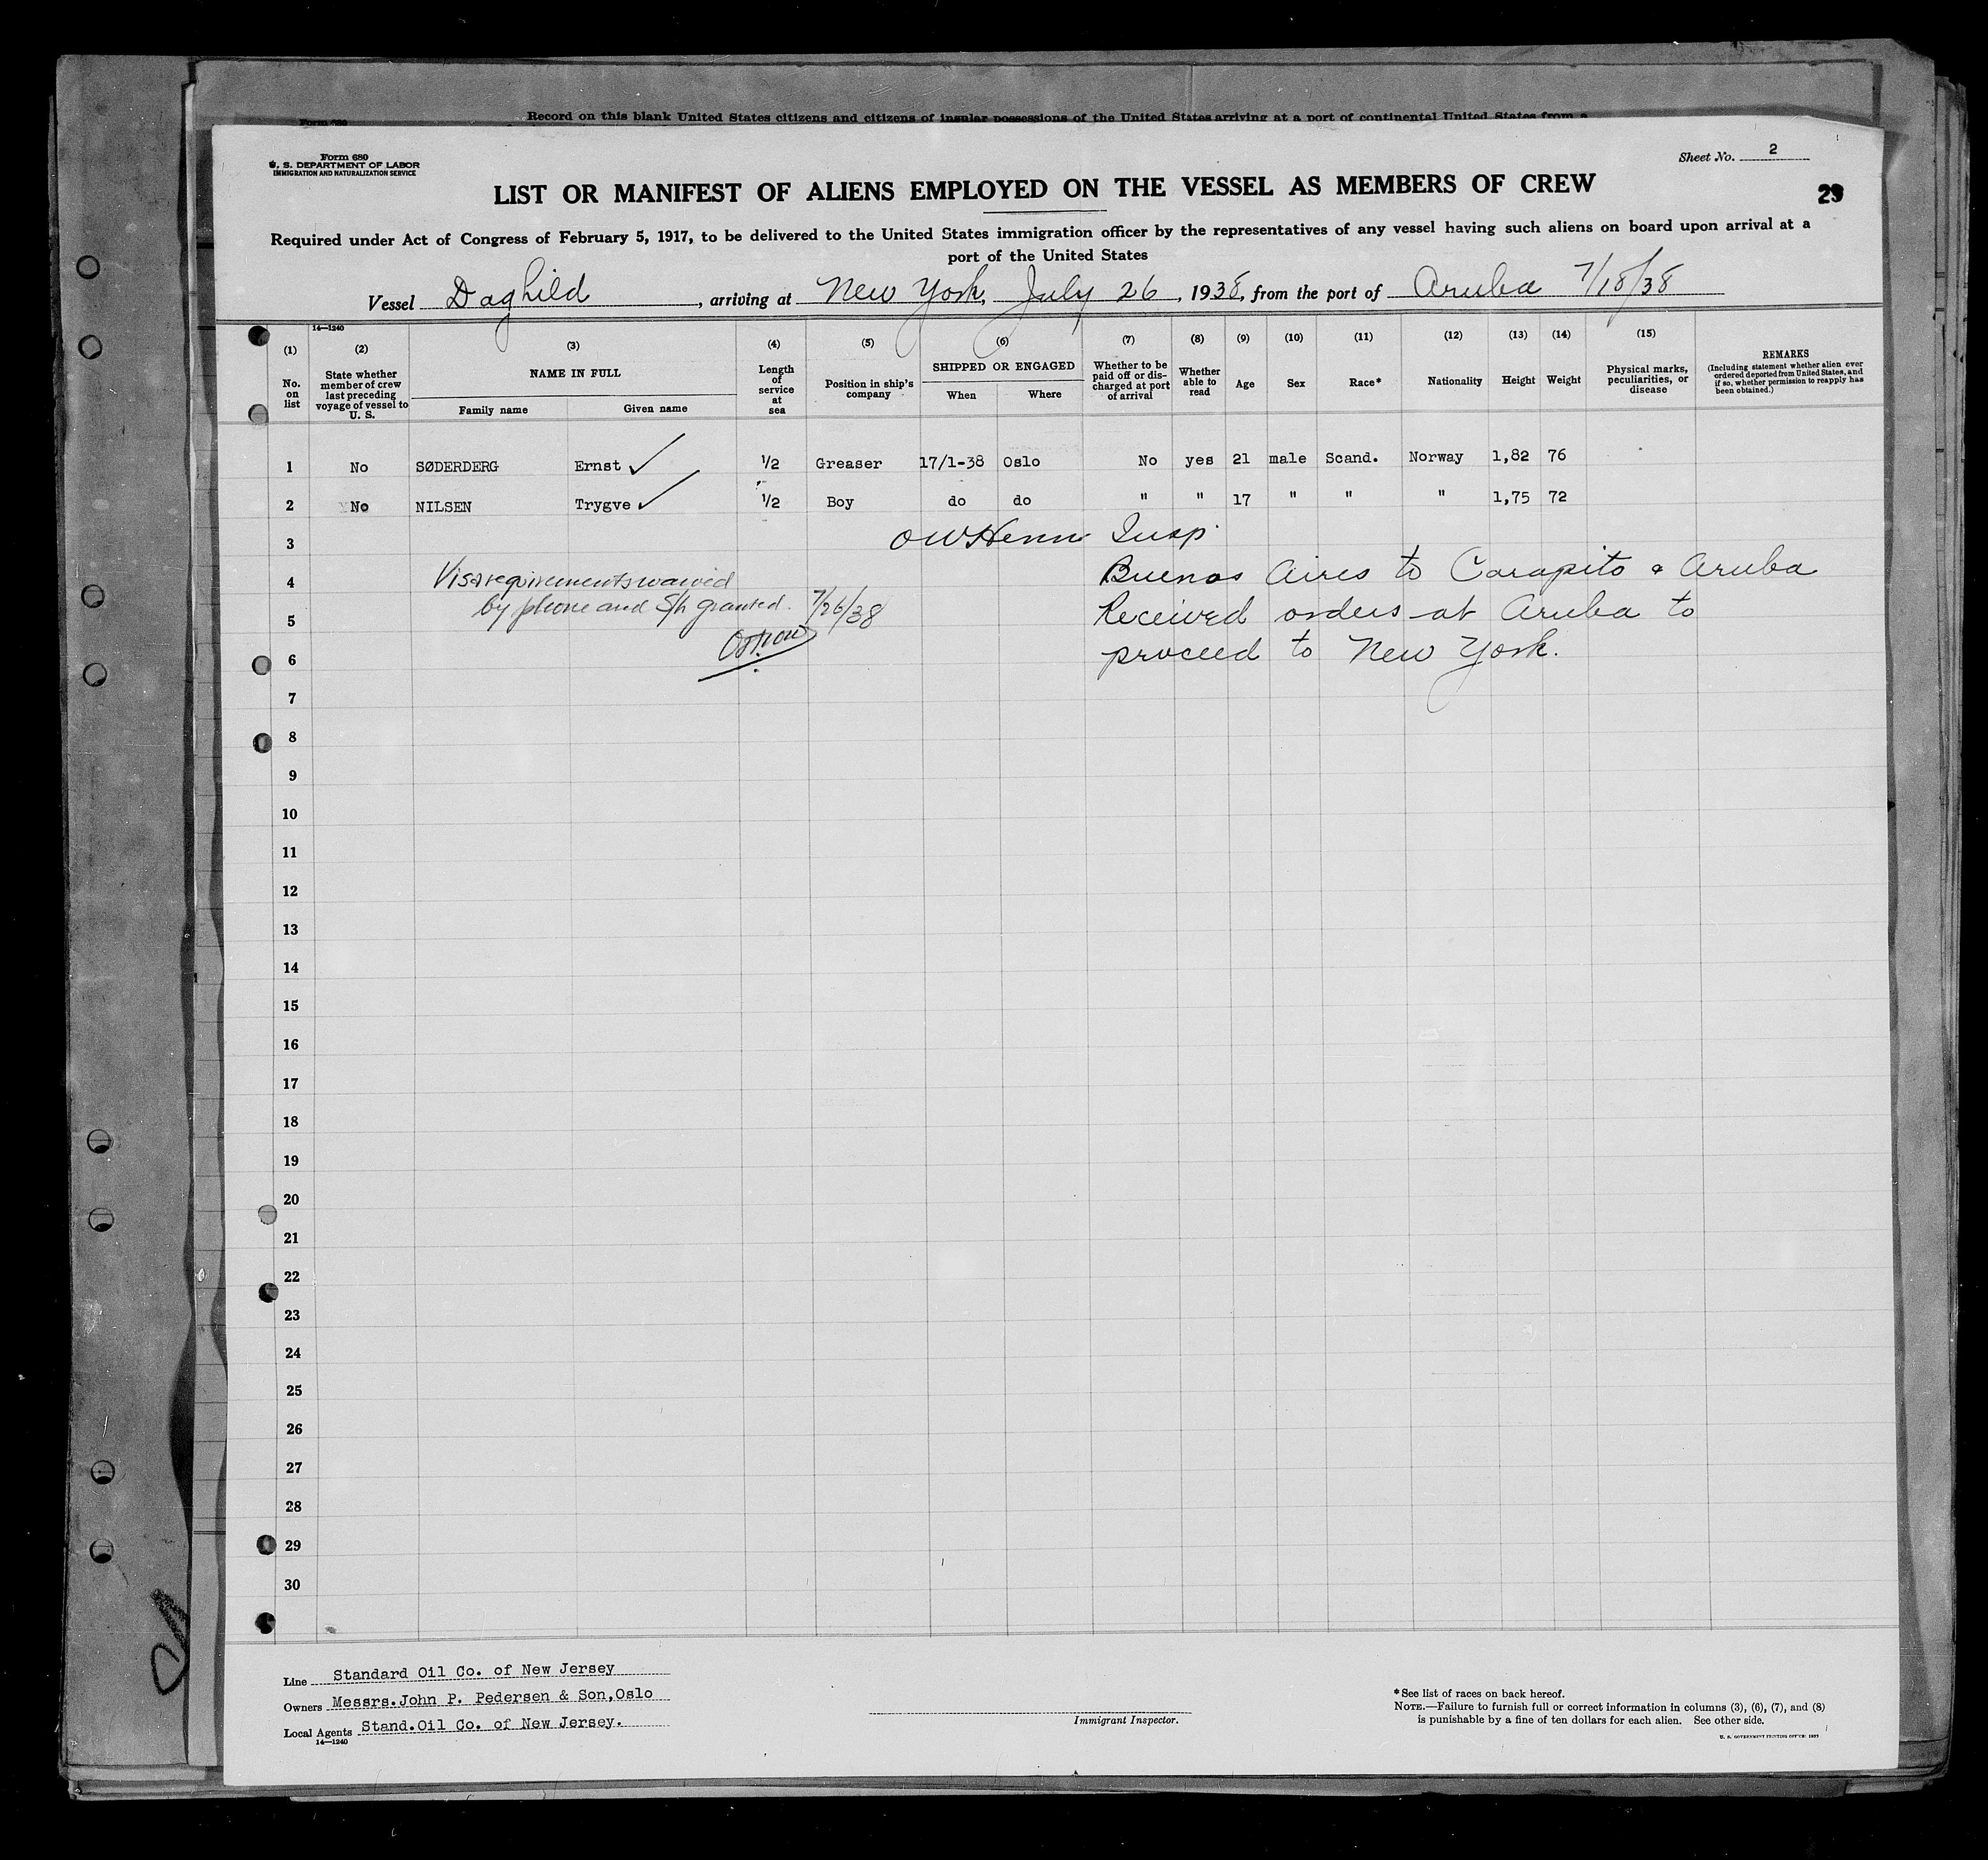 Record on this blank United States citizens and citizens of insular possessions of the United States arriving at a port of continental United States from a
Form 680
Form 680
U. S. DEPARTMENT OF LABOR
IMMIGRATION AND NATURALIZATION SERVICE
Sheet No. 2
LIST OR MANIFEST OF ALIENS EMPLOYED ON THE VESSEL AS MEMBERS OF CREW
29
Required under Act of Congress of February 5, 1917, to be delivered to the United States immigration officer by the representatives of any vessel having such aliens on board upon arrival at a
port of the United States
Vessel Daghild, arriving at New York, July 26, 1938, from the port of Aruba 7/18/38
14—1240
(1) (2) (3) (4) (5) (6) (7) (8) (9) (10) (11) (12) (13) (14) (15)
No. on list
State whether member of crew last preceding voyage of vessel to U. S.
NAME IN FULL
Family name
Given name
Length of service at sea
Position in ship's company
SHIPPED OR ENGAGED
When
Where
Whether to be paid off or discharged at port of arrival
Whether able to read
Age
Sex
Race*
Nationality
Height
Weight
Physical marks, peculiarities, or disease
REMARKS
(Including statement whether alien ever ordered deported from United States, and if so, whether permission to reapply has been obtained.)
1 No SØDERDERG Ernst ✓ 1/2 Greaser 17/1-38 Oslo No yes 21 male Scand. Norway 1,82 76
2 No NILSEN Trygve ✓ 1/2 Boy do do " " 17 " " " 1,75 72
3 OWHenn Insp.
4 Visa requirements waived Buenos Aires to Carapito & Aruba
5 by phone and S/h granted. 7/26/38 Received orders at Aruba to
6 proceed to New York.
7
8
9
10
11
12
13
14
15
16
17
18
19
20
21
22
23
24
25
26
27
28
29
30
Line Standard Oil Co. of New Jersey
Owners Messrs.John P. Pedersen & Son,Oslo
Local Agents Stand.Oil Co. of New Jersey.
14—1240
Immigrant Inspector.
* See list of races on back hereof.
NOTE.—Failure to furnish full or correct information in columns (3), (6), (7), and (8)
is punishable by a fine of ten dollars for each alien. See other side.
U. S. GOVERNMENT PRINTING OFFICE: 1937